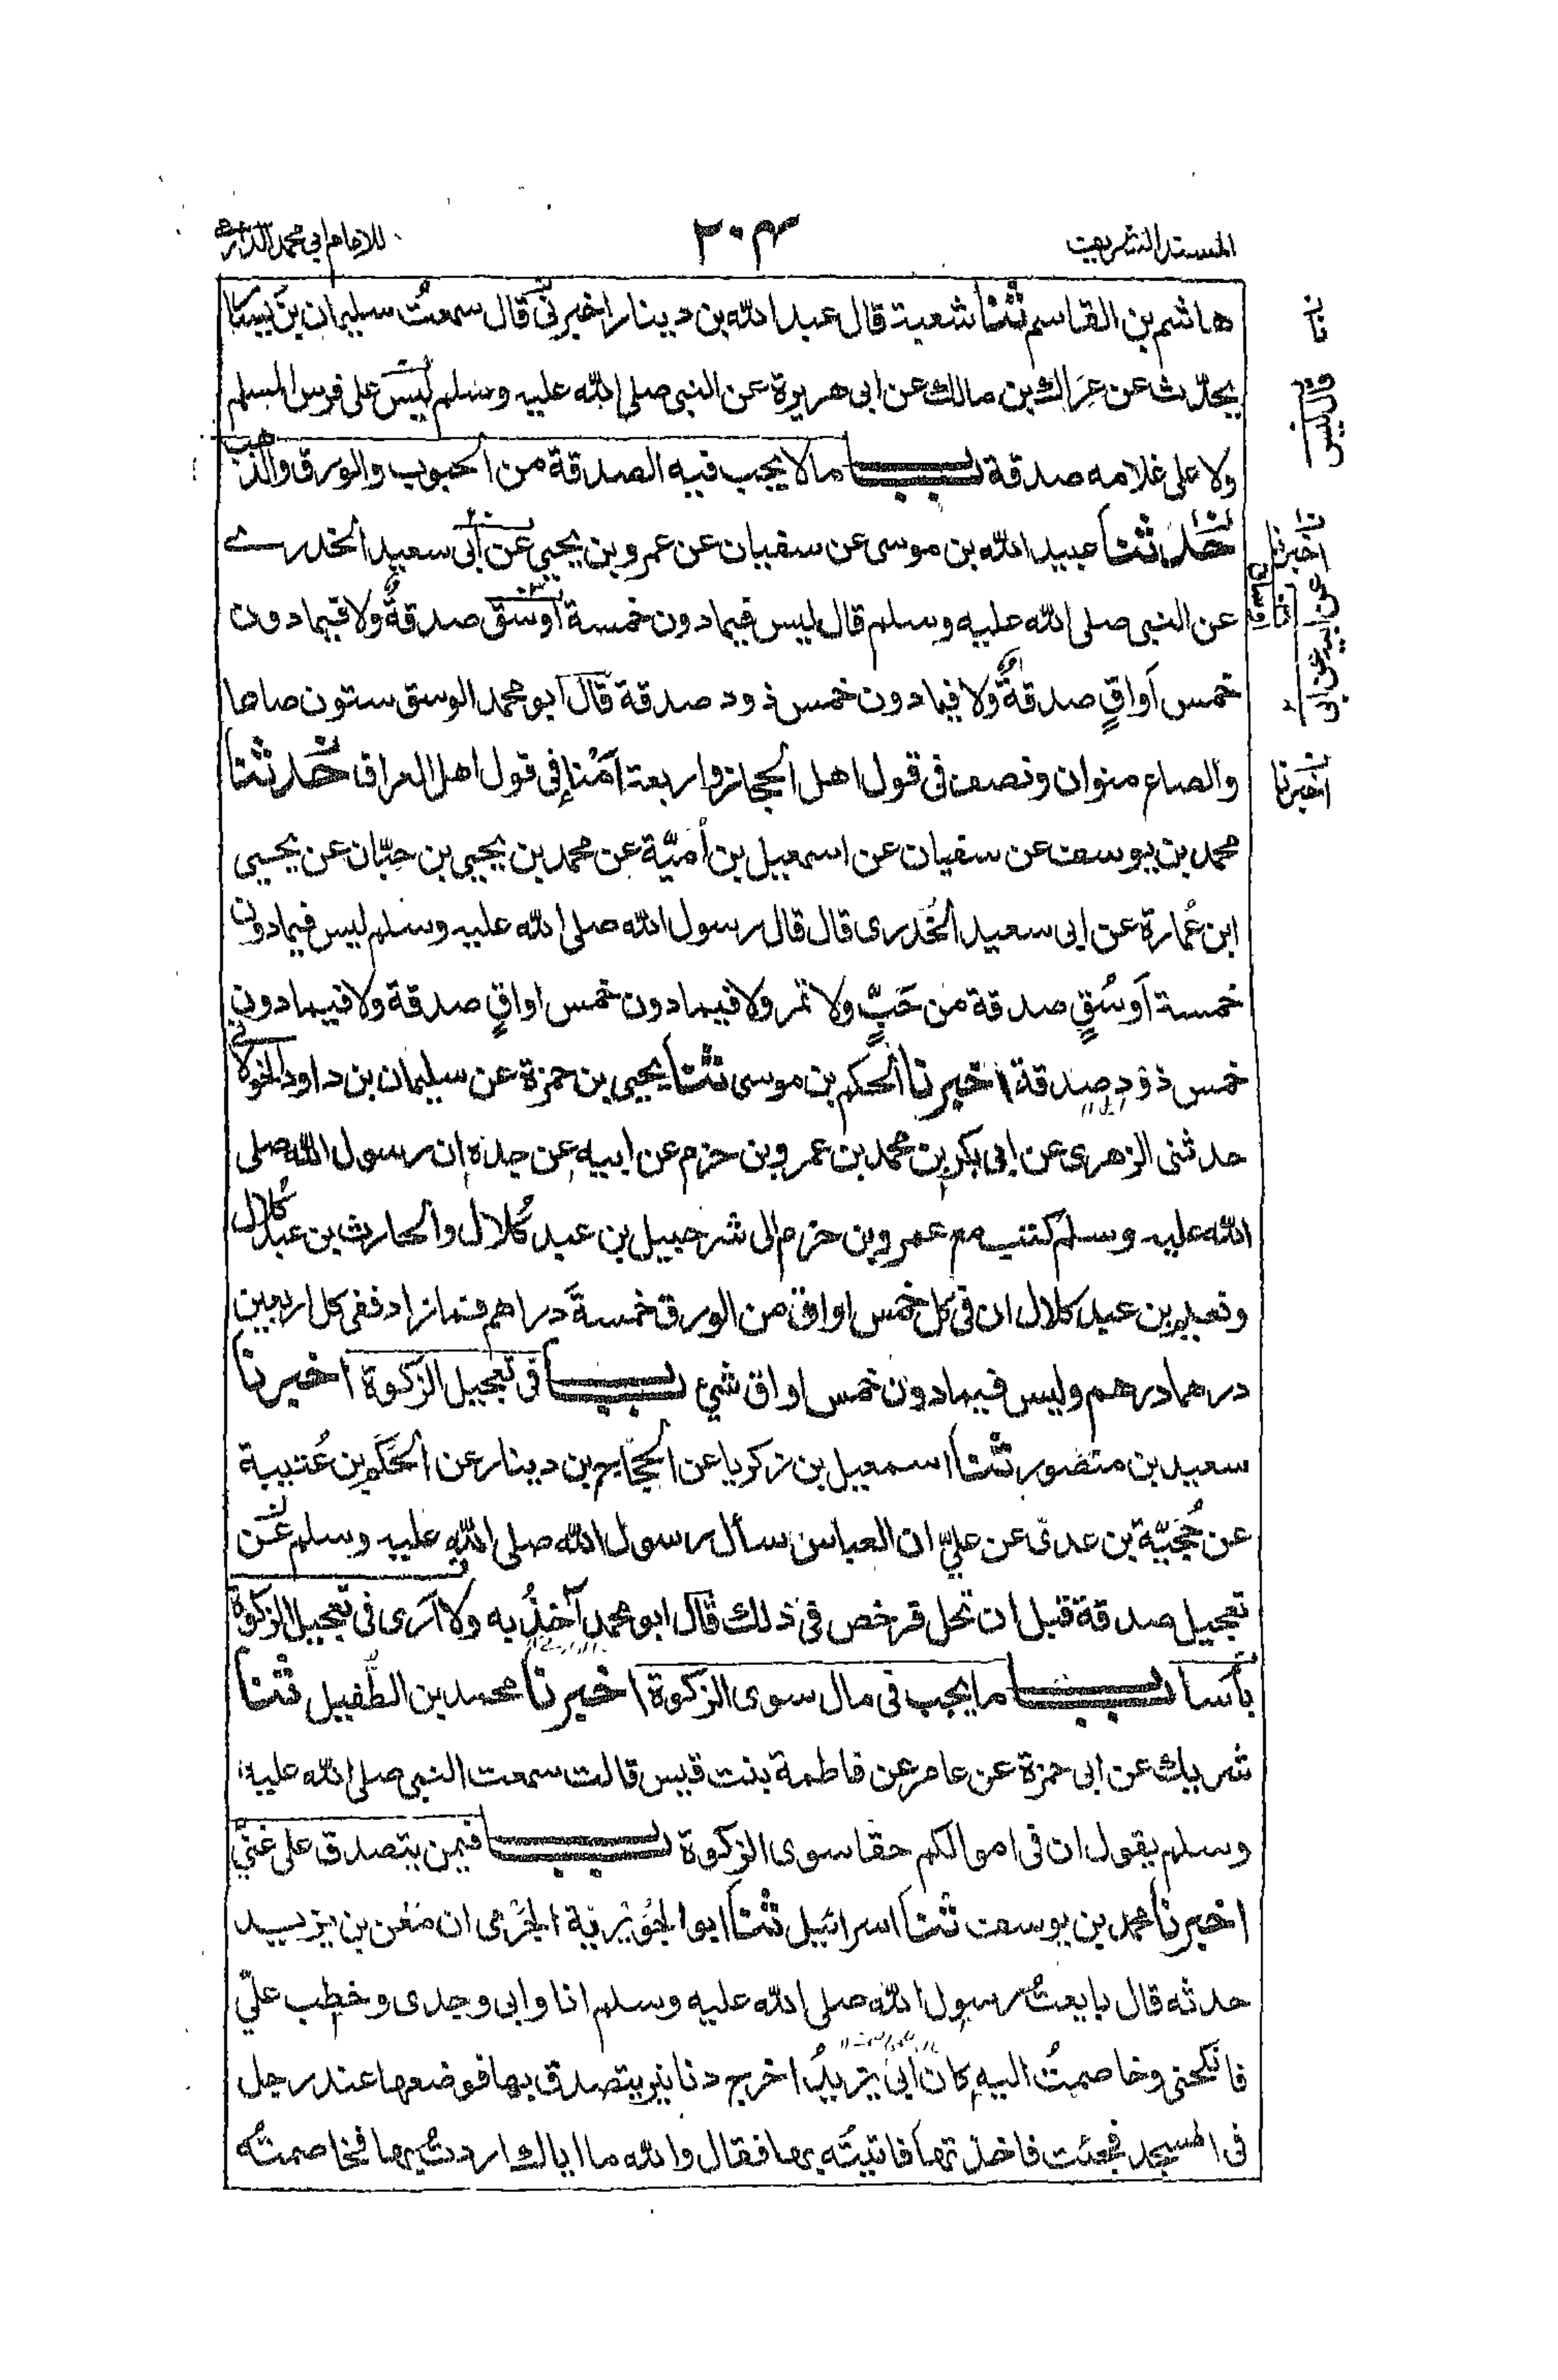 المسند الشريف
٢٠٣
للامام ابي محمد الدارمي
هاشم بن القاسم ثنا شعبة قال عبد الله بن دينار اخبرنى قال سمعت سليمان بن يسار
يحدّث عن عِرَاك بن مالك عن ابى هريرة عن النبى صلى الله عليه وسلم ليس على فرس المسلم
ولا على غلامه صدقة باب ما لا يجب فيه الصدقة من الحبوب والورق والذهب
حدثنا عبيد الله بن موسى عن سفيان عن عمرو بن يحيى عن ابى سعيد الخدرے
عن النبى صلى الله عليه وسلم قال ليس فيما دون خمسة اَوسُق صدقةٌ ولا فيما دون
خمس اَواقٍ صدقةٌ ولا فيما دون خمس ذود صدقة قال ابو محمد الوسق ستون صاعا
والصاع منوان ونصف فى قول اهل الحجاز واربعة اَمْنا فى قول اهل العراق حدثنا
محمد بن يوسف عن سفيان عن اسمعيل بن اُميّة عن محمد بن يحيى بن حبّان عن يحيى
ابن عُمارة عن ابى سعيد الخُدرى قال قال رسول الله صلى الله عليه وسلم ليس فيما دون
خمسة اَوسُقٍ صدقة من حَبٍّ ولا تمر ولا فيما دون خمس اواقٍ صدقة ولا فيما دون
خمس ذَوْد صدقة اخبرنا الحكم بن موسى ثنا يحيى بن حمزة عن سليمان بن داود الخولانى
حدثنى الزهرى عن ابى بكر بن محمد بن عمرو بن حزم عن ابيه عن جده ان رسول الله صلى
الله عليه وسلم كتب مع عمرو بن حزم الى شرحبيل بن عبد كُلال والحارث بن عبد كُلال
ونعيم بن عبد كلال ان فى كل خمس اواق من الورق خمسةَ دراهم فما زاد ففى كل اربعين
درهما درهم وليس فيما دون خمس اواق شئ باب فى تعجيل الزكوة اخبرنا
سعيد بن منصور ثنا اسمعيل بن زكريا عن الحجّاج بن دينار عن الحَكَم بن عُتيبة
عن حُجَيّة بن عدىّ عن علىّ ان العباس سأل رسول الله صلى الله عليه وسلم عن
تعجيل صدقة قبل ان تحل فرخص فى ذلك قال ابو محمد آخذُ به ولا اَرى فى تعجيل الزكوة
بأسا باب ما يجب فى مال سوى الزكوة اخبرنا محمد بن الطُّفيل ثنا
شريك عن ابى حمزة عن عامر عن فاطمة بنت قيس قالت سمعت النبى صلى الله عليه
وسلم يقول ان فى اموالكم حقا سوى الزكوة باب فيمن يتصدق على غنىٍّ
اخبرنا محمد بن يوسف ثنا اسرائيل ثنا ابو الجُوَيْرِيَة الجَرْمى ان مَعْن بن يزيد
حدثه قال بايعتُ رسول الله صلى الله عليه وسلم انا وابى وجدى وخطب علىّ
فانكحنى وخاصمتُ اليه كان اَبى يزيدُ اخرج دنانير يتصدق بها فوضعها عند رجل
فى المسجد فجئت فاخذتها فاتيتُه بها فقال والله ما اياك اردتُ بها فخاصمتُه
نا
قال ليس
اخبرنا
عن ابيه عن ابى
اخبرنا